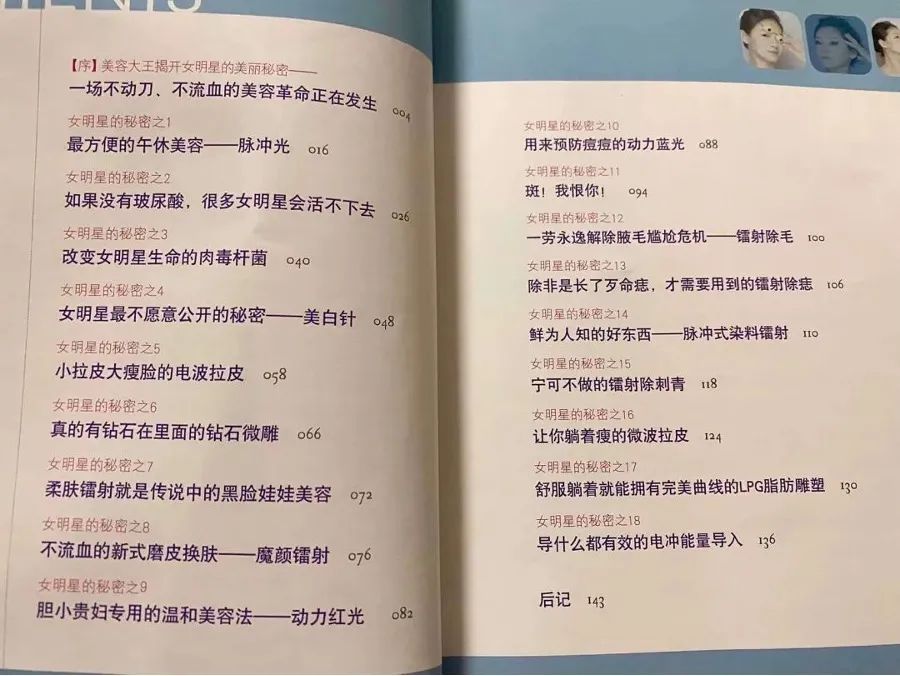 【序】美容大王揭开女明星的美丽秘密——
一场不动刀、不流血的美容革命正在发生 004
女明星的秘密之1
最方便的午休美容——脉冲光 016
女明星的秘密之2
如果没有玻尿酸，很多女明星会活不下去 026
女明星的秘密之3
改变女明星生命的肉毒杆菌 040
女明星的秘密之4
女明星最不愿意公开的秘密——美白针 048
女明星的秘密之5
小拉皮大瘦脸的电波拉皮 058
女明星的秘密之6
真的有钻石在里面的钻石微雕 066
女明星的秘密之7
柔肤镭射就是传说中的黑脸娃娃美容 072
女明星的秘密之8
不流血的新式磨皮换肤——魔颜镭射 076
女明星的秘密之9
胆小贵妇专用的温和美容法——动力红光 082
女明星的秘密之10
用来预防痘痘的动力蓝光 088
女明星的秘密之11
斑！我恨你！ 094
女明星的秘密之12
一劳永逸解除腋毛尴尬危机——镭射除毛 100
女明星的秘密之13
除非是长了歹命痣，才需要用到的镭射除痣 106
女明星的秘密之14
鲜为人知的好东西——脉冲式染料镭射 110
女明星的秘密之15
宁可不做的镭射除刺青 118
女明星的秘密之16
让你躺着瘦的微波拉皮 124
女明星的秘密之17
舒服躺着就能拥有完美曲线的LPG脂肪雕塑 130
女明星的秘密之18
导什么都有效的电冲能量导入 136
后记 143